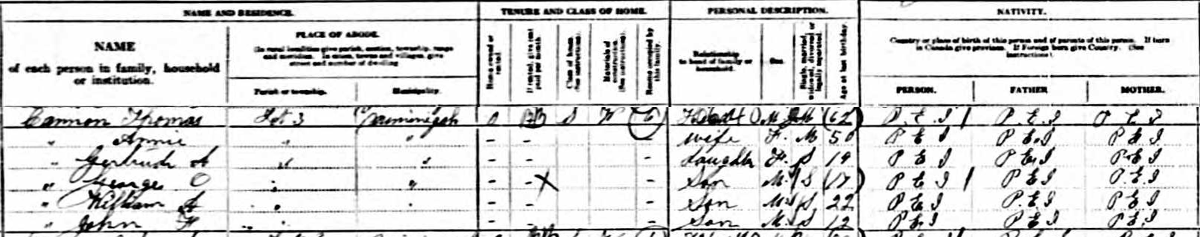 NAME AND RESIDENCE. TENURE AND CLASS OF HOME. PERSONAL DESCRIPTION. NATIVITY.
NAME
of each person in family, household
or institution.
PLACE OF ABODE.
(In rural localities give parish, section, township, range
and meridian. In cities, towns and villages give
street and number of dwelling
Parish or township. Municipality.
Home owned or rented.
If rented, give rent paid per month.
Class of house (See instructions).
Materials of construction (See instructions).
Rooms occupied by this family.
Relationship
to head of family or
household.
Sex.
Single, married, widowed, divorced or legally separated.
Age at last birthday.
Country or place of birth of this person and of parents of this person. If born
in Canada give province. If Foreign born give Country. (See
instructions).
PERSON. FATHER MOTHER.
Cannon Thomas Lot 3 O S W 6 Head M M 62 P E I P. E I P E I
" Annie " " - - - Wife F. M 50 P E I P E. I P E I
" Gertrude A " " - - - Daughter F. S 19 P E I P E. I P. E I
" George O " " - - X - Son M. S 17 P E I P E I P E I
" William A " " - - - Son M S 22 P E I P E I P E I
" John F " " - - - Son M S 12 P E I P E I P E I